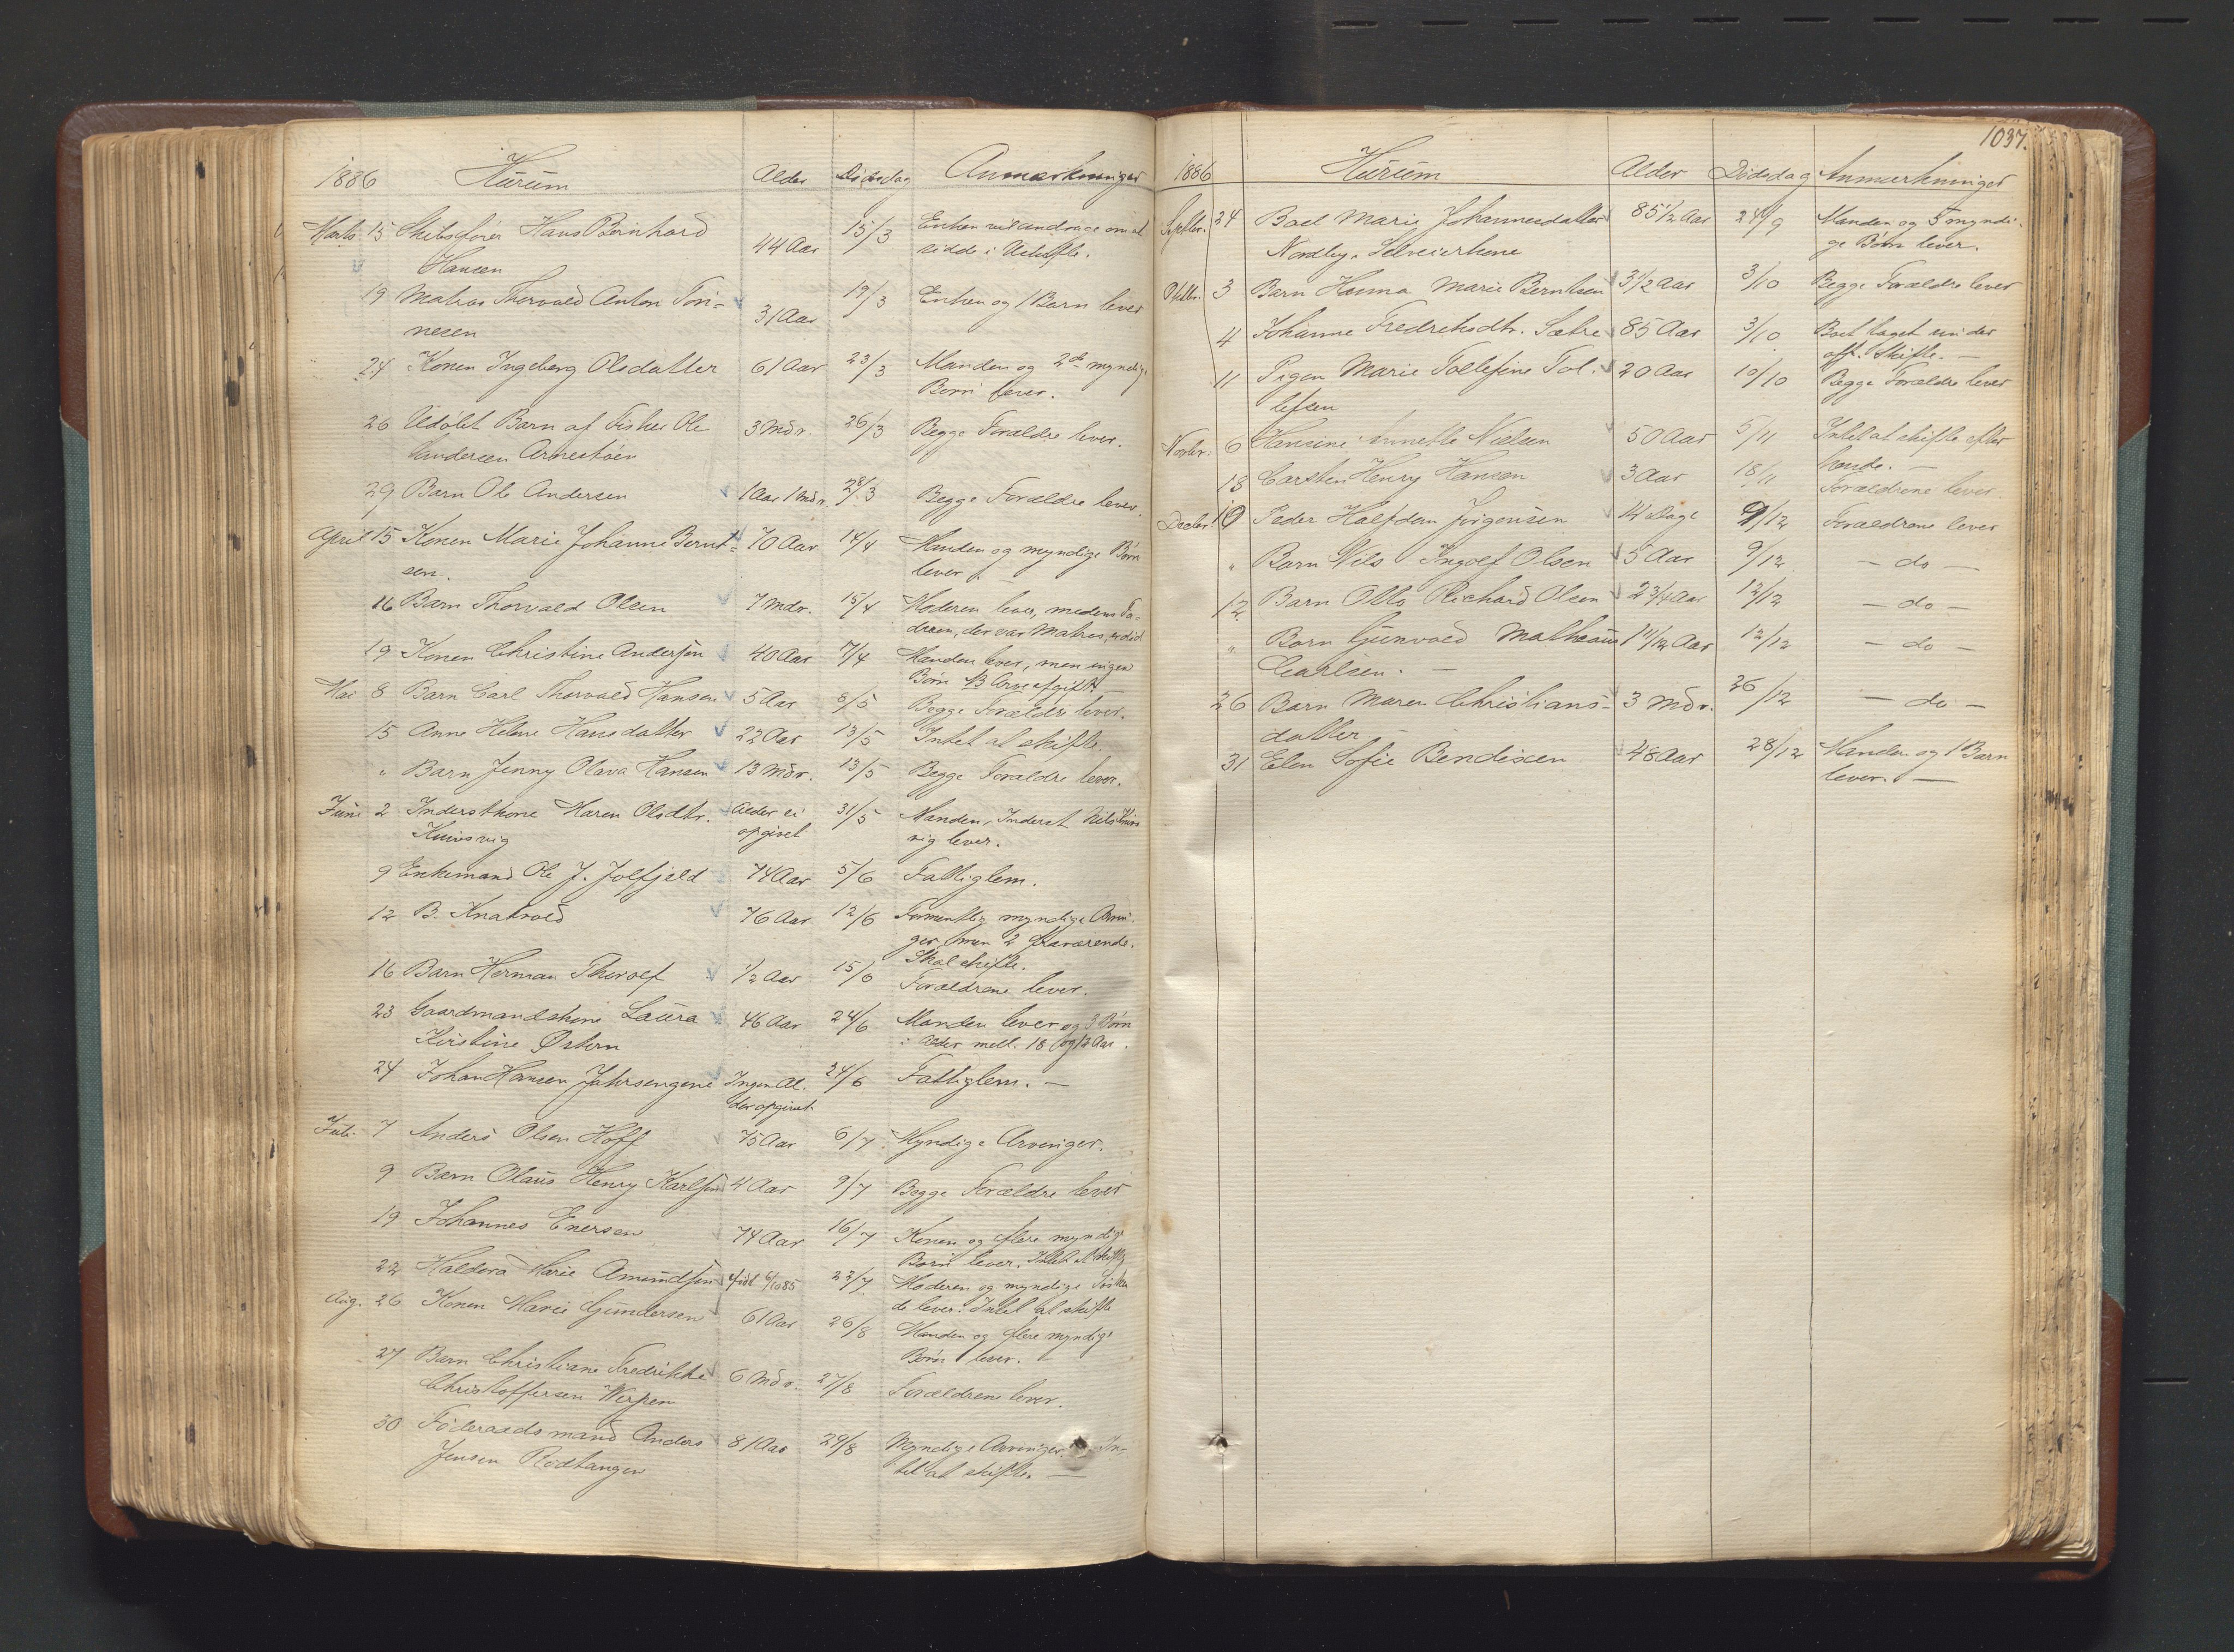 1886 Hurum Alder Dødsdag Anmærkninger
Marts 15 Skibsfører Hans Bernhard 44 Aar 15/3 Enken vil andrage om at
Hansen sidde i Uskifte.
19 Matros Thorvald Anton Tøn-
nesen 31 Aar 19/3 Enken og 1 Barn lever
24 Konen Ingeborg Olsdatter 61 Aar 23/3 Manden og 2de myndige
Børn lever.
26 Udøbt Barn af Fisker Ole 3 Mdr. 26/3 Begge Forældre lever.
Andersen Arnestøen
29 Barn Ole Andersen 1 Aar 1 Mdr. 28/3 Begge Forældre lever.
April 15 Konen Marie Johanne Bernt- 70 Aar 14/4 Manden og myndige Børn
sen. lever.
16 Barn Thorvald Olsen 7 Mdr. 15/4 Moderen lever, medens Fa-
deren, der var Matros, er død
19 Konen Christine Andersen 40 Aar 7/4 Manden lever, men ingen
Børn. NB Arveafgift
Mai 8 Barn Carl Thorvald Hansen 5 Aar 8/5 Begge Forældre lever.
15 Anne Helene Hansdatter 22 Aar 13/5 Intet at skifte.
" Barn Jenny Olava Hansen 13 Mdr. 13/5 Begge Forældre lever.
Juni 2 Inderstkone Maren Olsdtr. Alder ei 31/5 Manden, Inderst Nils Knivs
Knivsvig opgivet vig lever.
9 Enkemand Ole J. Jolfjeld 74 Aar 5/6 Fattiglem.
12 B. Knatvold 76 Aar 12/6 Formentlig myndige Arvin-
ger, men 2 fraværende.
Skal skifte.
16 Barn Herman Thorolf 1/2 Aar 15/6 Forældrene lever.
23 Gaardmandskone Laura 46 Aar 24/6 Manden lever og 3 Børn
Kirstine Østern i Alder mell. 18 og 12 Aar.
24 Johan Hansen Jahrsengene Ingen Al- 24/6 Fattiglem. —
der opgivet
Juli 7 Anders Olsen Hoff 75 Aar 6/7 Myndige Arvinger.
9 Barn Olaus Henry Karlsen 4 Aar 9/7 Begge Forældre lever
19 Johannes Enersen 74 Aar 16/7 Konen og flere myndige
Børn lever. Intet at skifte
22 Marie Amundsen født 6/10 85 22/7 Moderen og myndige Søsken
de lever. Intet at skifte
Aug. 26 Konen Marie Gundersen 61 Aar 26/8 Manden og flere myndige
Børn lever.
27 Barn Christiane Fredrikke 6 Mdr. 27/8 Forældrene lever.
Christoffersen Werpen
30 Føderaadsmand Anders 81 Aar 29/8 Myndige Arvinger. In-
Jensen Rødtangen tet at skifte. —
1037.
1886 Hurum Alder Dødsdag Anmærkninger
Septbr. 24 Boel Marie Johannesdatter 85 1/2 Aar 24/9 Manden og 5 myndi-
Nordby, Selveierkone ge Børn lever.
Oktbr. 3 Barn Hanna Marie Berntsen 3 1/2 Aar 3/10 Begge Forældre lever
4 Johanne Fredreksdtr. Sætre 85 Aar 3/10 Boet taget under
off. Skifte. —
11 Pigen Marie Tollefine Tol- 20 Aar 10/10 Begge Forældre lever
lefsen
Novbr. 6 Hansine Annette Nielsen 50 Aar 5/11 Intet at skifte efter
hende. —
18 Carsten Henry Hansen 3 Aar 18/11 Forældrene lever.
Decbr. 10 Peder Halfdan Jørgensen 14 Dage 9/12 Forældrene lever
" Barn Nils Ingolf Olsen 5 Aar 9/12 — do —
12 Barn Otto Richard Olsen 2 3/4 Aar 12/12 — do —
" Barn Gunvald Mathæus 1 11/12 Aar 12/12 — do —
Carlsen. —
26 Barn Maren Christians- 3 Mdr. 26/12 — do —
datter —
31 Elen Sofie Bendixen 48 Aar 28/12 Manden og 1 Barn
lever. —